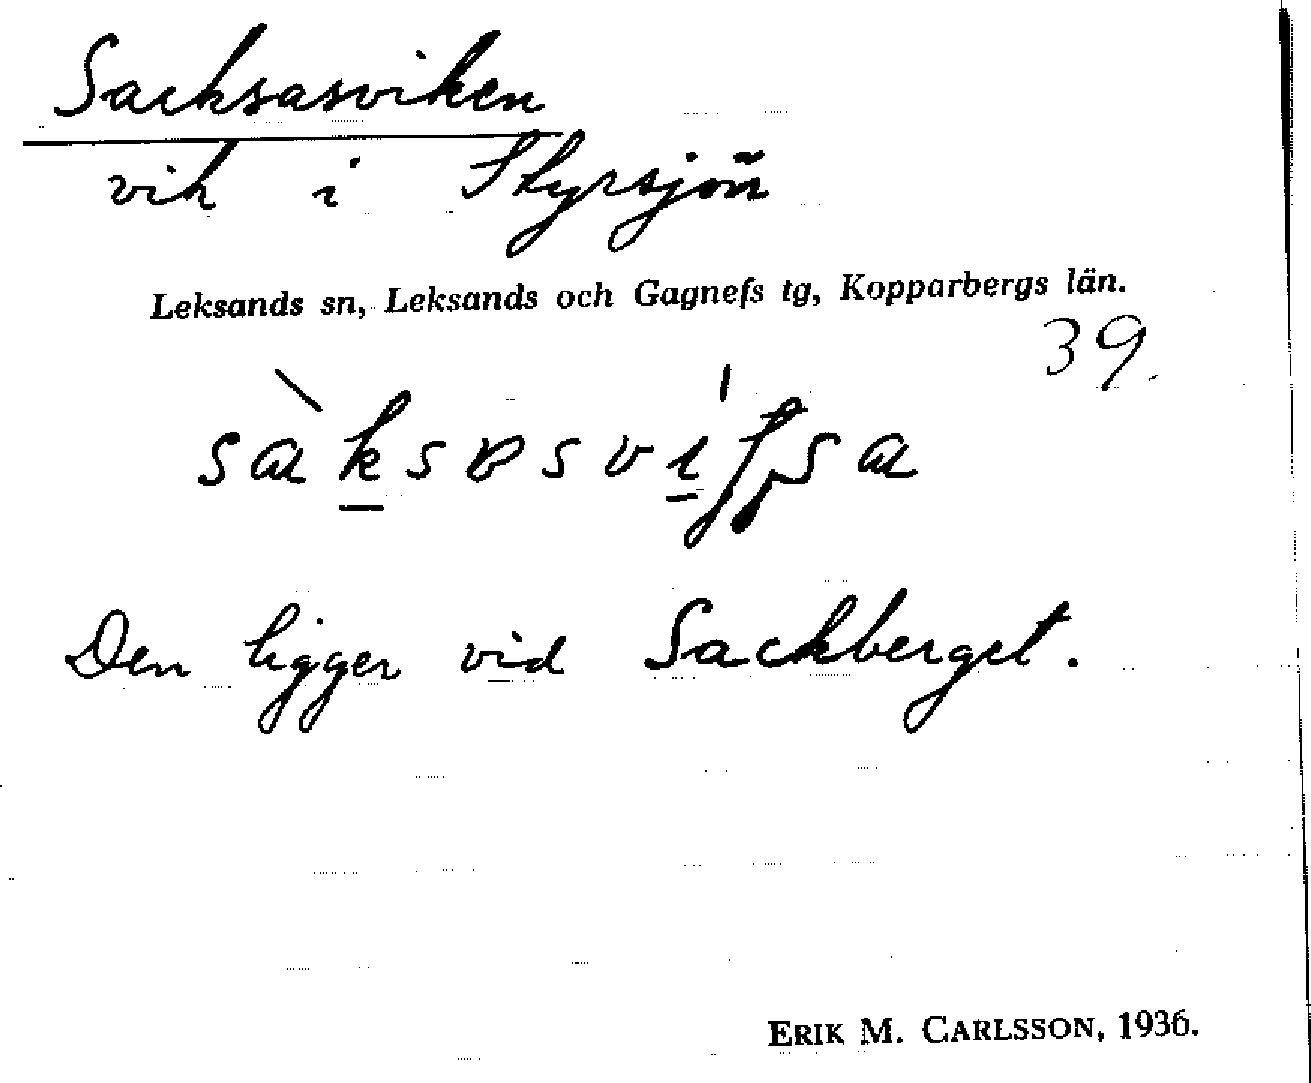 Sacksasviken
vik i Styrsjön
Leksands sn, Leksands och Gagnefs tg, Kopparbergs län.
39.
Den ligger vid Sackberget.
ERIK M. CARLSSON, 1936.